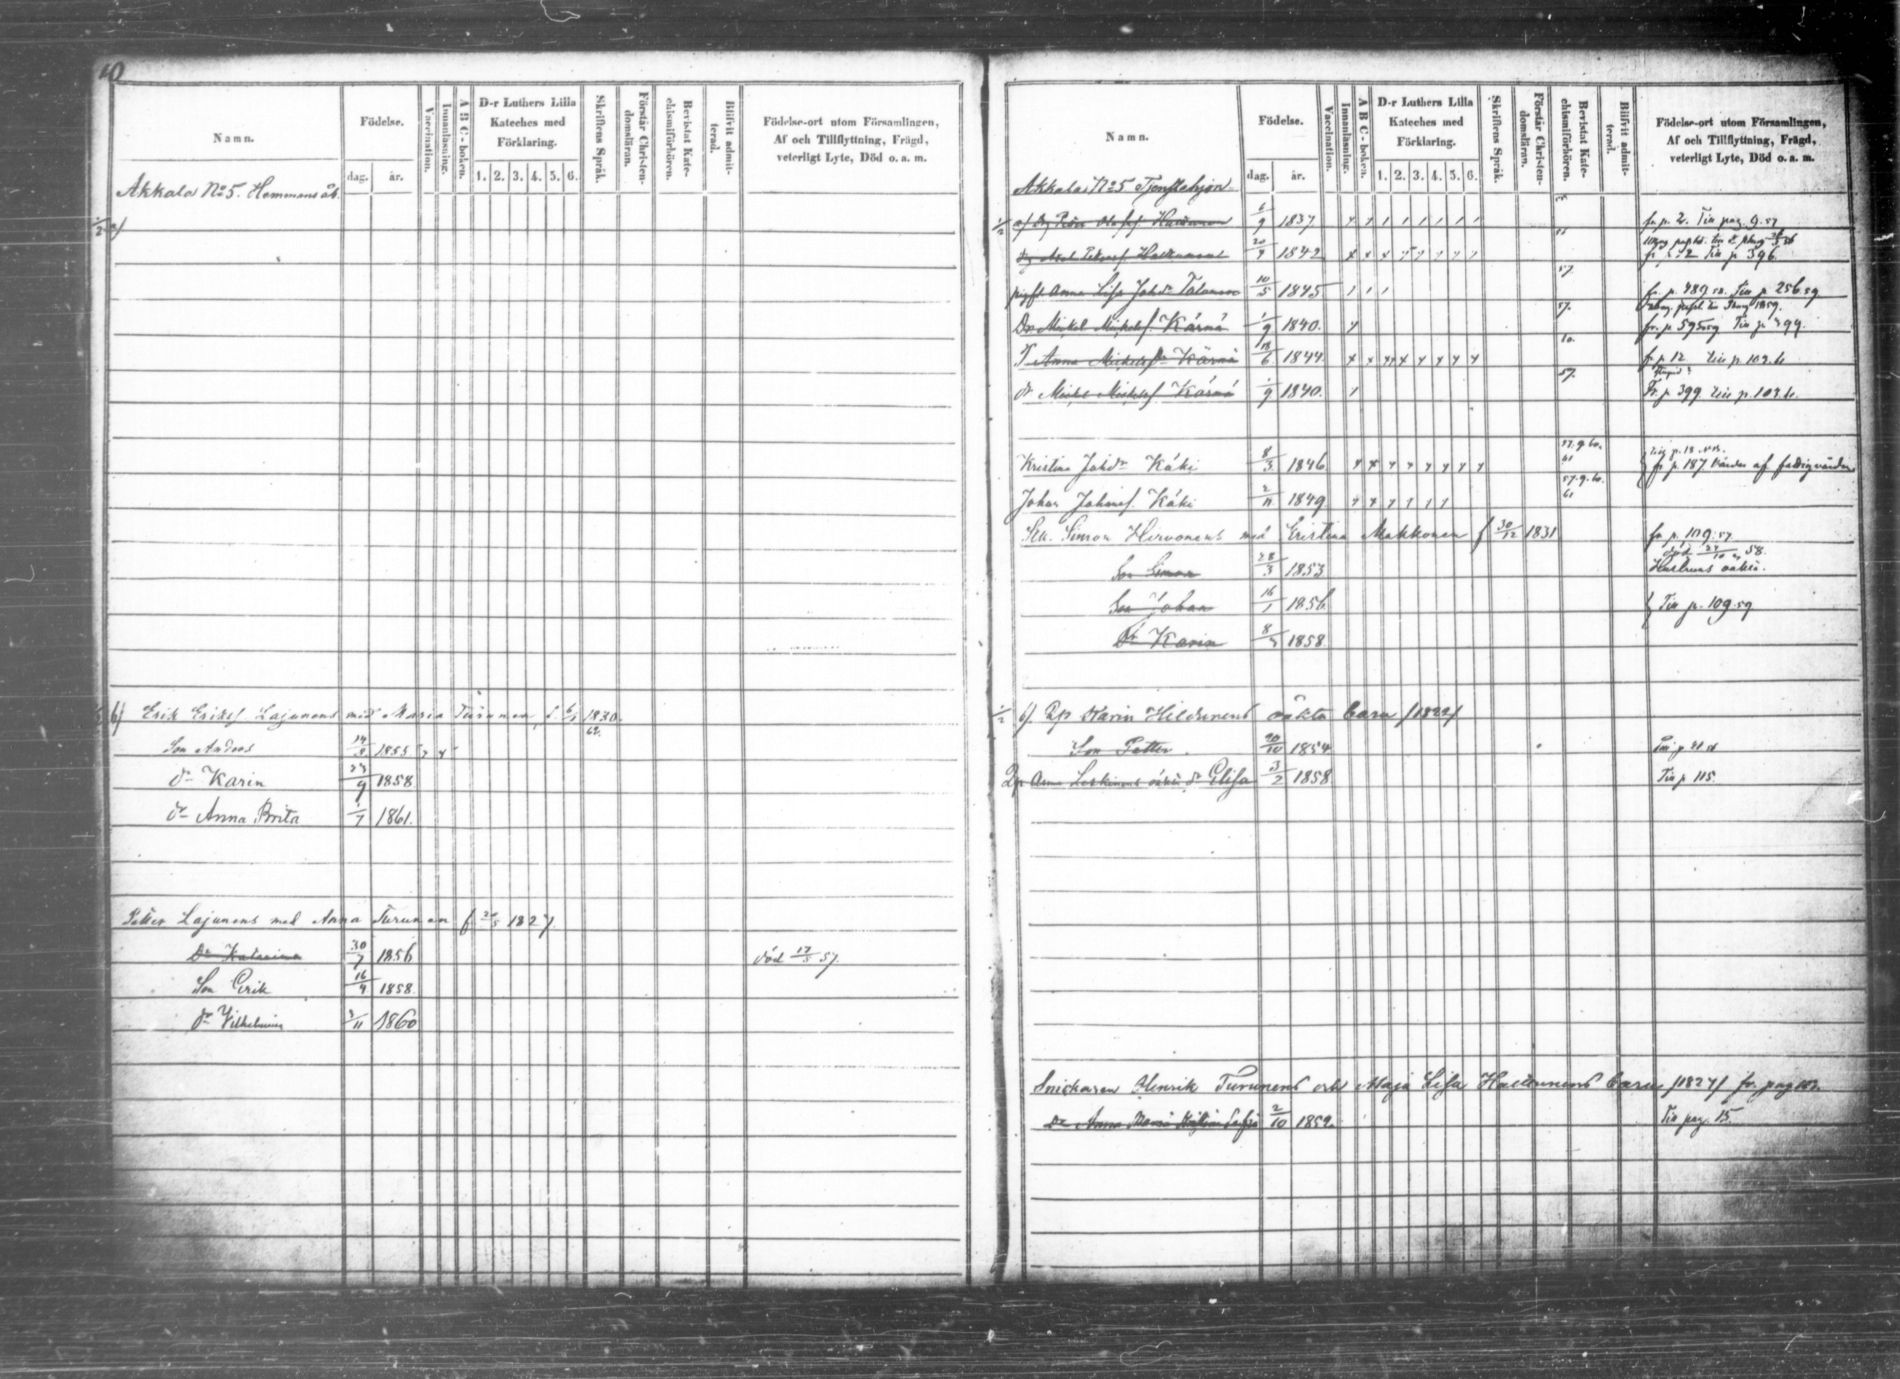 10
Namn. Födelse. dag. år. Vaccination. Innanläsning. A B C-boken. D-r Luthers Lilla Kateches med Förklaring. 1. 2. 3. 4. 5. 6. Skriftens Språk. Förstår Christendomsläran. Bevistat Katechismiförhören. Blifvit admitterad. Födelse-ort utom Församlingen, Af och Tillflyttning, Frägd, veterligt Lyte, Död o. a. m.
Akkala No 5. Hemmans åb.
1/2 a/
b/ Erik Eriksf. Lajunens med Maria Turunen f. 6/1 1830.
Son Anders 1855
dr Karin 9 1858
dr Anna Brita 1/7 1861.
Petter Lajunens med Anna Turunen f 1827.
Dr Katarina 30/7 1856 död 17/5 57.
Son Erik 16/4 1858.
dr Vilhelmina 3/11 1860
Namn. Födelse. dag. år. Vaccination. Innanläsning. A B C-boken. D-r Luthers Lilla Kateches med Förklaring. 1. 2. 3. 4. 5. 6. Skriftens Språk. Förstår Christendomsläran. Bevistat Katechismiförhören. Blifvit admitterad. Födelse-ort utom Församlingen, Af och Tillflyttning, Frägd, veterligt Lyte, Död o. a. m.
Akkala No 5 Tjenstehjon
1/2 a/ 6/9 1837 fr p. 2. Till pag. 9. 57
20/9 1842 Till p 396
Anna Lisa Johdr 10/5 1845 57. fr. p. 489 Till p 256.59
Dr Mickel Mickelsf. Kärnä 1/9 1840. 57. fr. p 595 Till p 399.
Anna Mickelsdr Kärnä 18/6 1844 fr p 12 till p. 103.
dr Mickel Mickelsf. Kärnä 1/9 1840. 57. Fr. p 399 till p. 103.
Kristina Johdr Käki 8/3 1846 57. 9. 60. 61 fr p. 187 vårdas af fattigvården
Johan Johansf. Käki 2/11 1849 57. 9. 60. 61
Simon Hirvonens med Kristina Makkonen f 30/12 1831 fr p. 109. 57.
Son Simon 28/3 1853 död 58. Hustruns oäkta.
Son Johan 16/1 1856 Till p. 109. 59
Dr Karin 8 1858
1/2 b/ Karin Hildunens oäkta barn /1822/
Son Petter. 20/10 1854
Anna Leskinens oäkta dr Elisa 3/2 1858 Till p 115.
Snickaren Henrik Turunens Maja Lisa barn /1827/ fr. pag 103.
Dr Anna 2/10 1859. Till pag. 15.